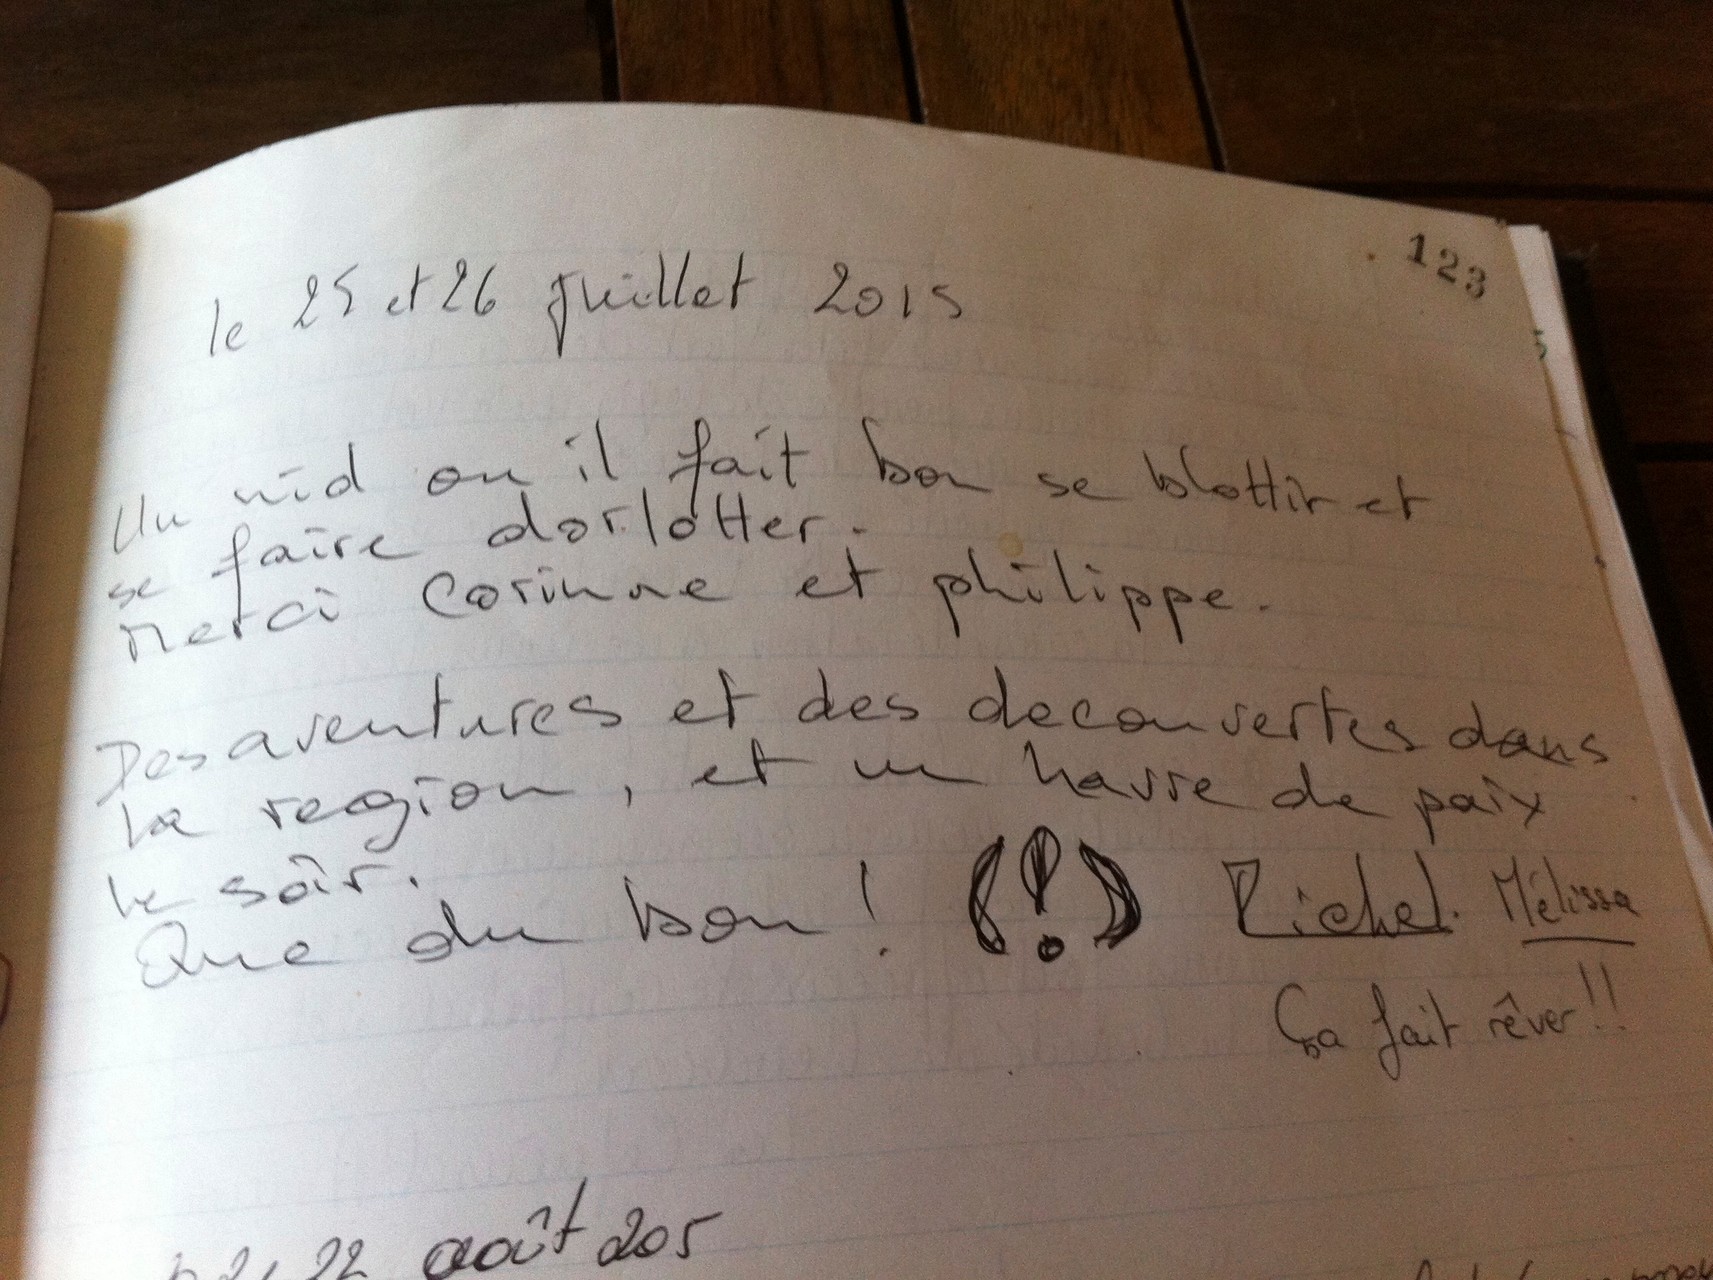 123
le 25 et 26 Juillet 2015
Un nid ou il fait bon se blottir et
se faire dorlotter.
Merci Corinne et philippe.
Des aventures et des decouvertes dans
la region, et un havre de paix
le soir.
Que du bon ! (!) Michel. Mélissa
Ça fait rêver!!
22 août 205